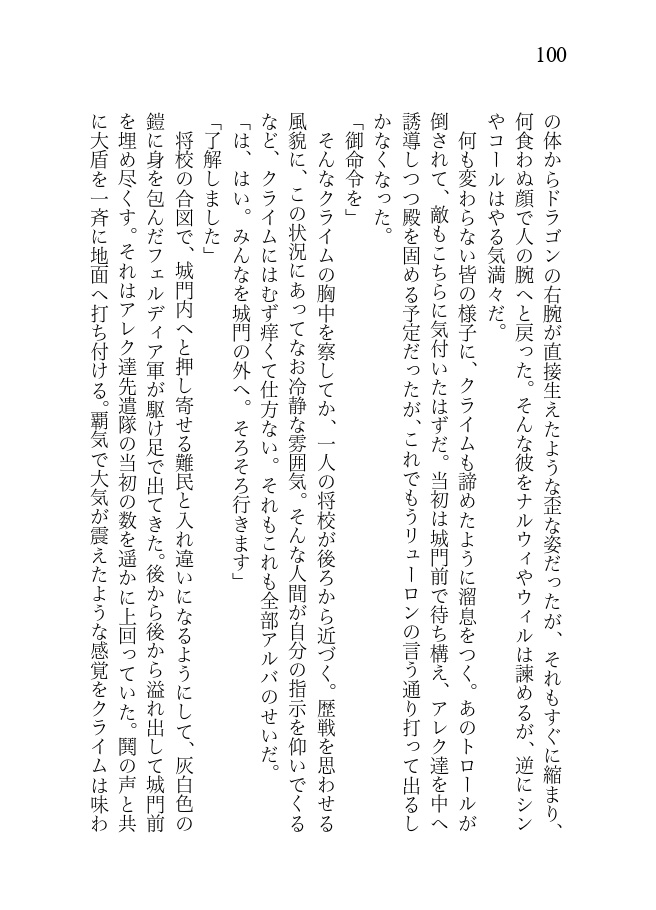 100
の体からドラゴンの右腕が直接生えたような歪な姿だったが、それもすぐに縮まり、
何食わぬ顔で人の腕へと戻った。そんな彼をナルウィやウィルは諫めるが、逆にシン
やコールはやる気満々だ。
　何も変わらない皆の様子に、クライムも諦めたように溜息をつく。あのトロールが
倒されて、敵もこちらに気付いたはずだ。当初は城門前で待ち構え、アレク達を中へ
誘導しつつ殿を固める予定だったが、これでもうリューロンの言う通り打って出るし
かなくなった。
「御命令を」
　そんなクライムの胸中を察してか、一人の将校が後ろから近づく。歴戦を思わせる
風貌に、この状況にあってなお冷静な雰囲気。そんな人間が自分の指示を仰いでくる
など、クライムにはむず痒くて仕方ない。それもこれも全部アルバのせいだ。
「は、はい。みんなを城門の外へ。そろそろ行きます」
「了解しました」
　将校の合図で、城門内へと押し寄せる難民と入れ違いになるようにして、灰白色の
鎧に身を包んだフェルディア軍が駆け足で出てきた。後から後から溢れ出して城門前
を埋め尽くす。それはアレク達先遣隊の当初の数を遥かに上回っていた。鬨の声と共
に大盾を一斉に地面へ打ち付ける。覇気で大気が震えたような感覚をクライムは味わ